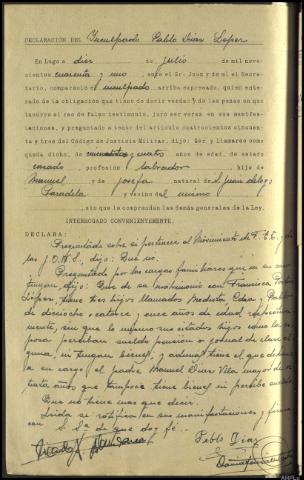 DECLARACIÓN DEL Inculpado Pablo Diaz Lopez
En Lugo a diez de julio de mil nove-
cientos cuarenta y uno ante el Sr. Juez y de mi el Secre-
tario, compareció el inculpado arriba expresado, quien ente-
rado de la obligación que tiene de decir verdad y de las penas en que
incurre el reo de falso testimonio, juró ser veraz en sus manifes-
taciones, y preguntado a tenor del artículo cuatrocientos cincuen-
ta y tres del Código de Justicia Militar, dijo: Ser y llamarse como
queda dicho, de y cuatro años de edad, de estado
casado profesión labrador hijo de
Manuel y de Josefa natural de S. Juan de
Paradela y vecino del mismo
, sin que le comprendan las demás generales de la Ley.
INTERROGADO CONVENIENTEMENTE,
DECLARA:
Preguntado sobre si pertenece al Movimiento de F.E.T. y de
las J.O.N.S., dijo: Que no.
Preguntado por las cargas familiares que
dijo: Que de su matrimonio con Francisca
López, tiene tres hijos llamados Modesta, y Pablo
de dieciocho, catorce y once años de edad respectiva-
mente, sin que lo mismo sus citados hijos como la es-
posa perciban sueldo pensión o jornal de clase al-
guna, ni tengan bienes, y además tiene el que
a su cargo el padre Manuel Diaz Vila mayor de
años que tampoco tiene bienes ni percibe sueldo
Que no tiene mas que decir.
Leida se ratifica en sus manifestaciones y firma
con S. Sª de que doy fé.
Pablo Diaz